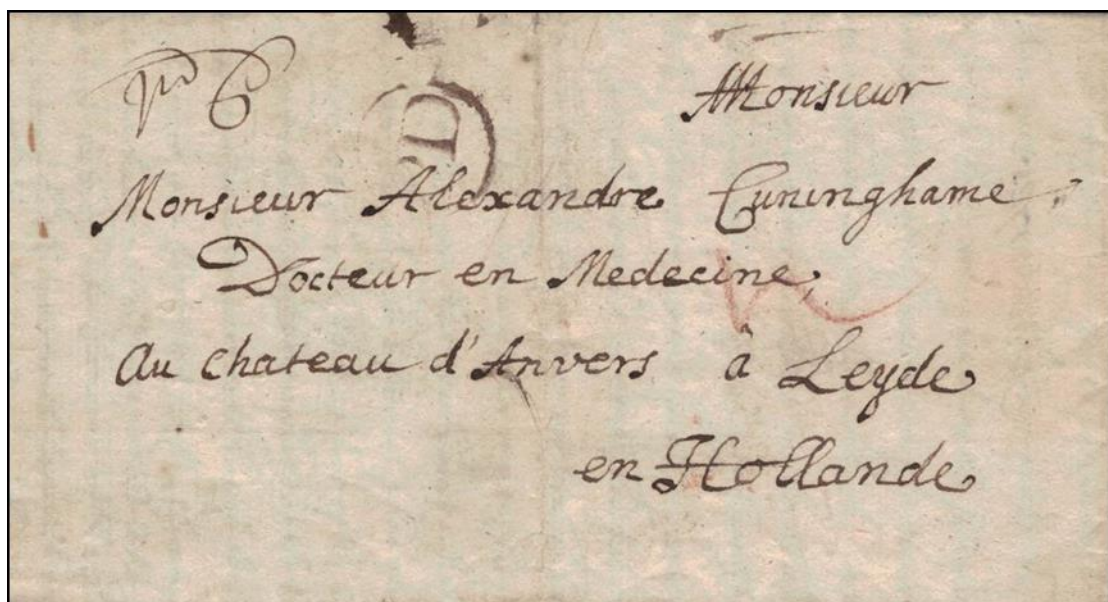 Monsieur
Monsieur Alexandre Cuninghame,
Docteur en Medecine,
Au Chateau d'Anvers à Leyde
en Hollande